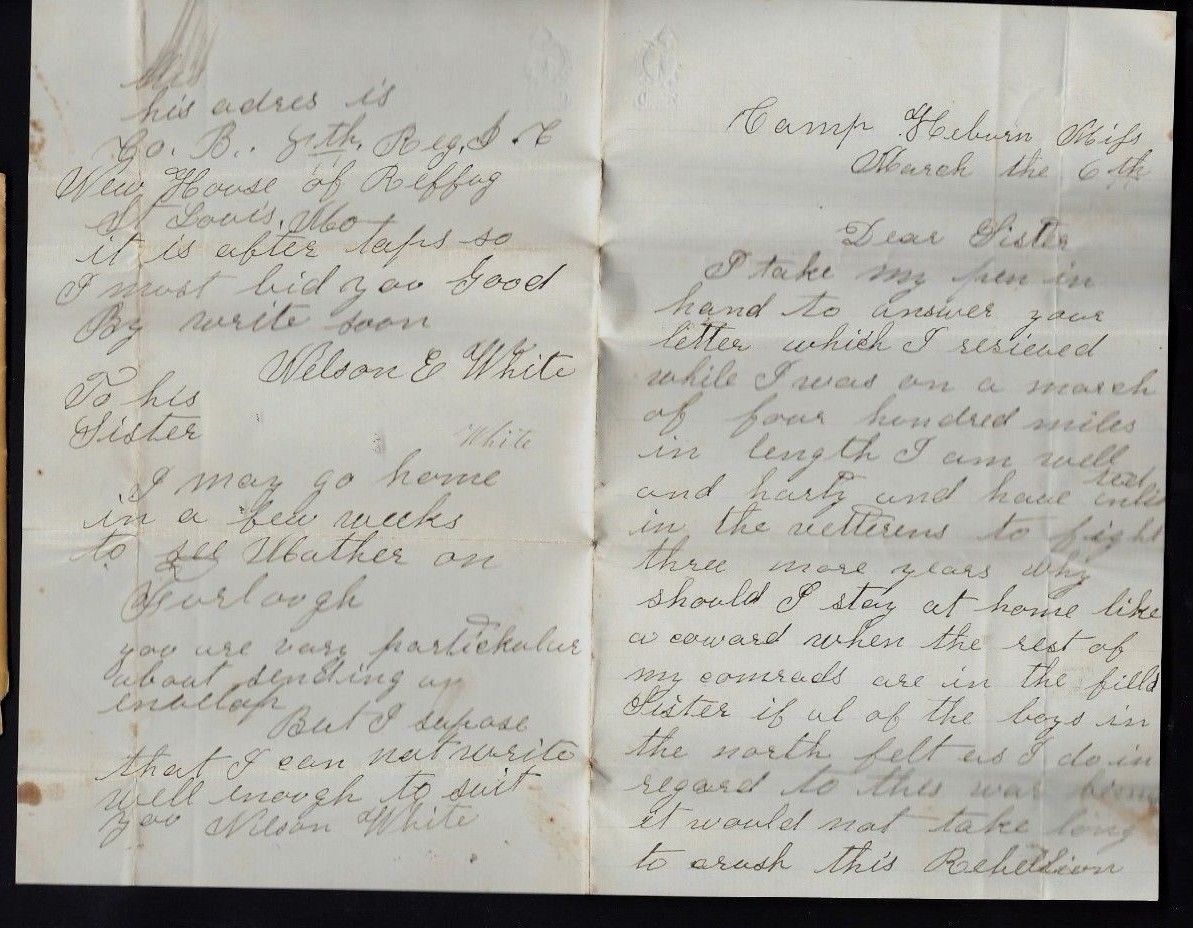 Camp Heburn Miss
March the 6th
Dear Sister
I take my pen in
hand to answer your
letter which I resieved
while I was on a march
of four hundred miles
in length I am well
and harty and have
in the vetterens to fight
three more years Why
should I stay at home like
a coward when the rest of
my comrads are in the filld
Sister if al of the boys in
the north felt as I do in
regard to this war
it would not take long
to crush this Rebellion
his adres is
Co. B. Reg. I.
New House of Reffug
St Louis. Mo
it is after taps so
I must bid you Good
By write soon
Nelson E White
To his
Sister
White
I may go home
in a few weeks
to see Mother on
Furlough
you are vary partickular
about sending an
invellop
But I supose
that I can not write
well enough to suit
you Nelson White